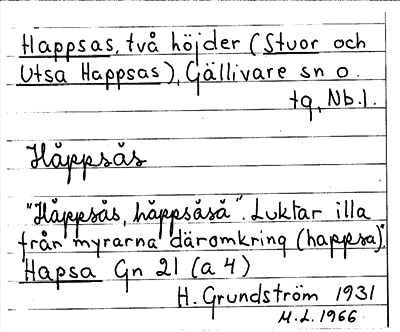 Happsas, två höjder (Stuor och
Utsa Happsas), Gällivare sn o.
tg, Nb.l.
Håppsås
"Håppsås, håppsåså". Luktar illa
från myrarna däromkring (happsa)".
Hapsa Gn 21 (a 4)
H. Grundström 1931
M.L. 1966.